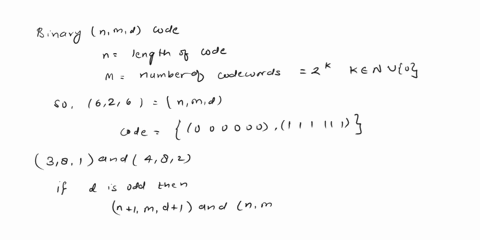 Binary (n,m,d) code
n = length of code
M = number of codewords = 2^k k∈N∪{0}
so, (6,2,6) = (n,m,d)
code = {(0 0 0 0 0 0), (1 1 1 1 1 1)}
(3,8,1) and (4,8,2)
if d is odd then
(n+1, m, d+1) and (n, m